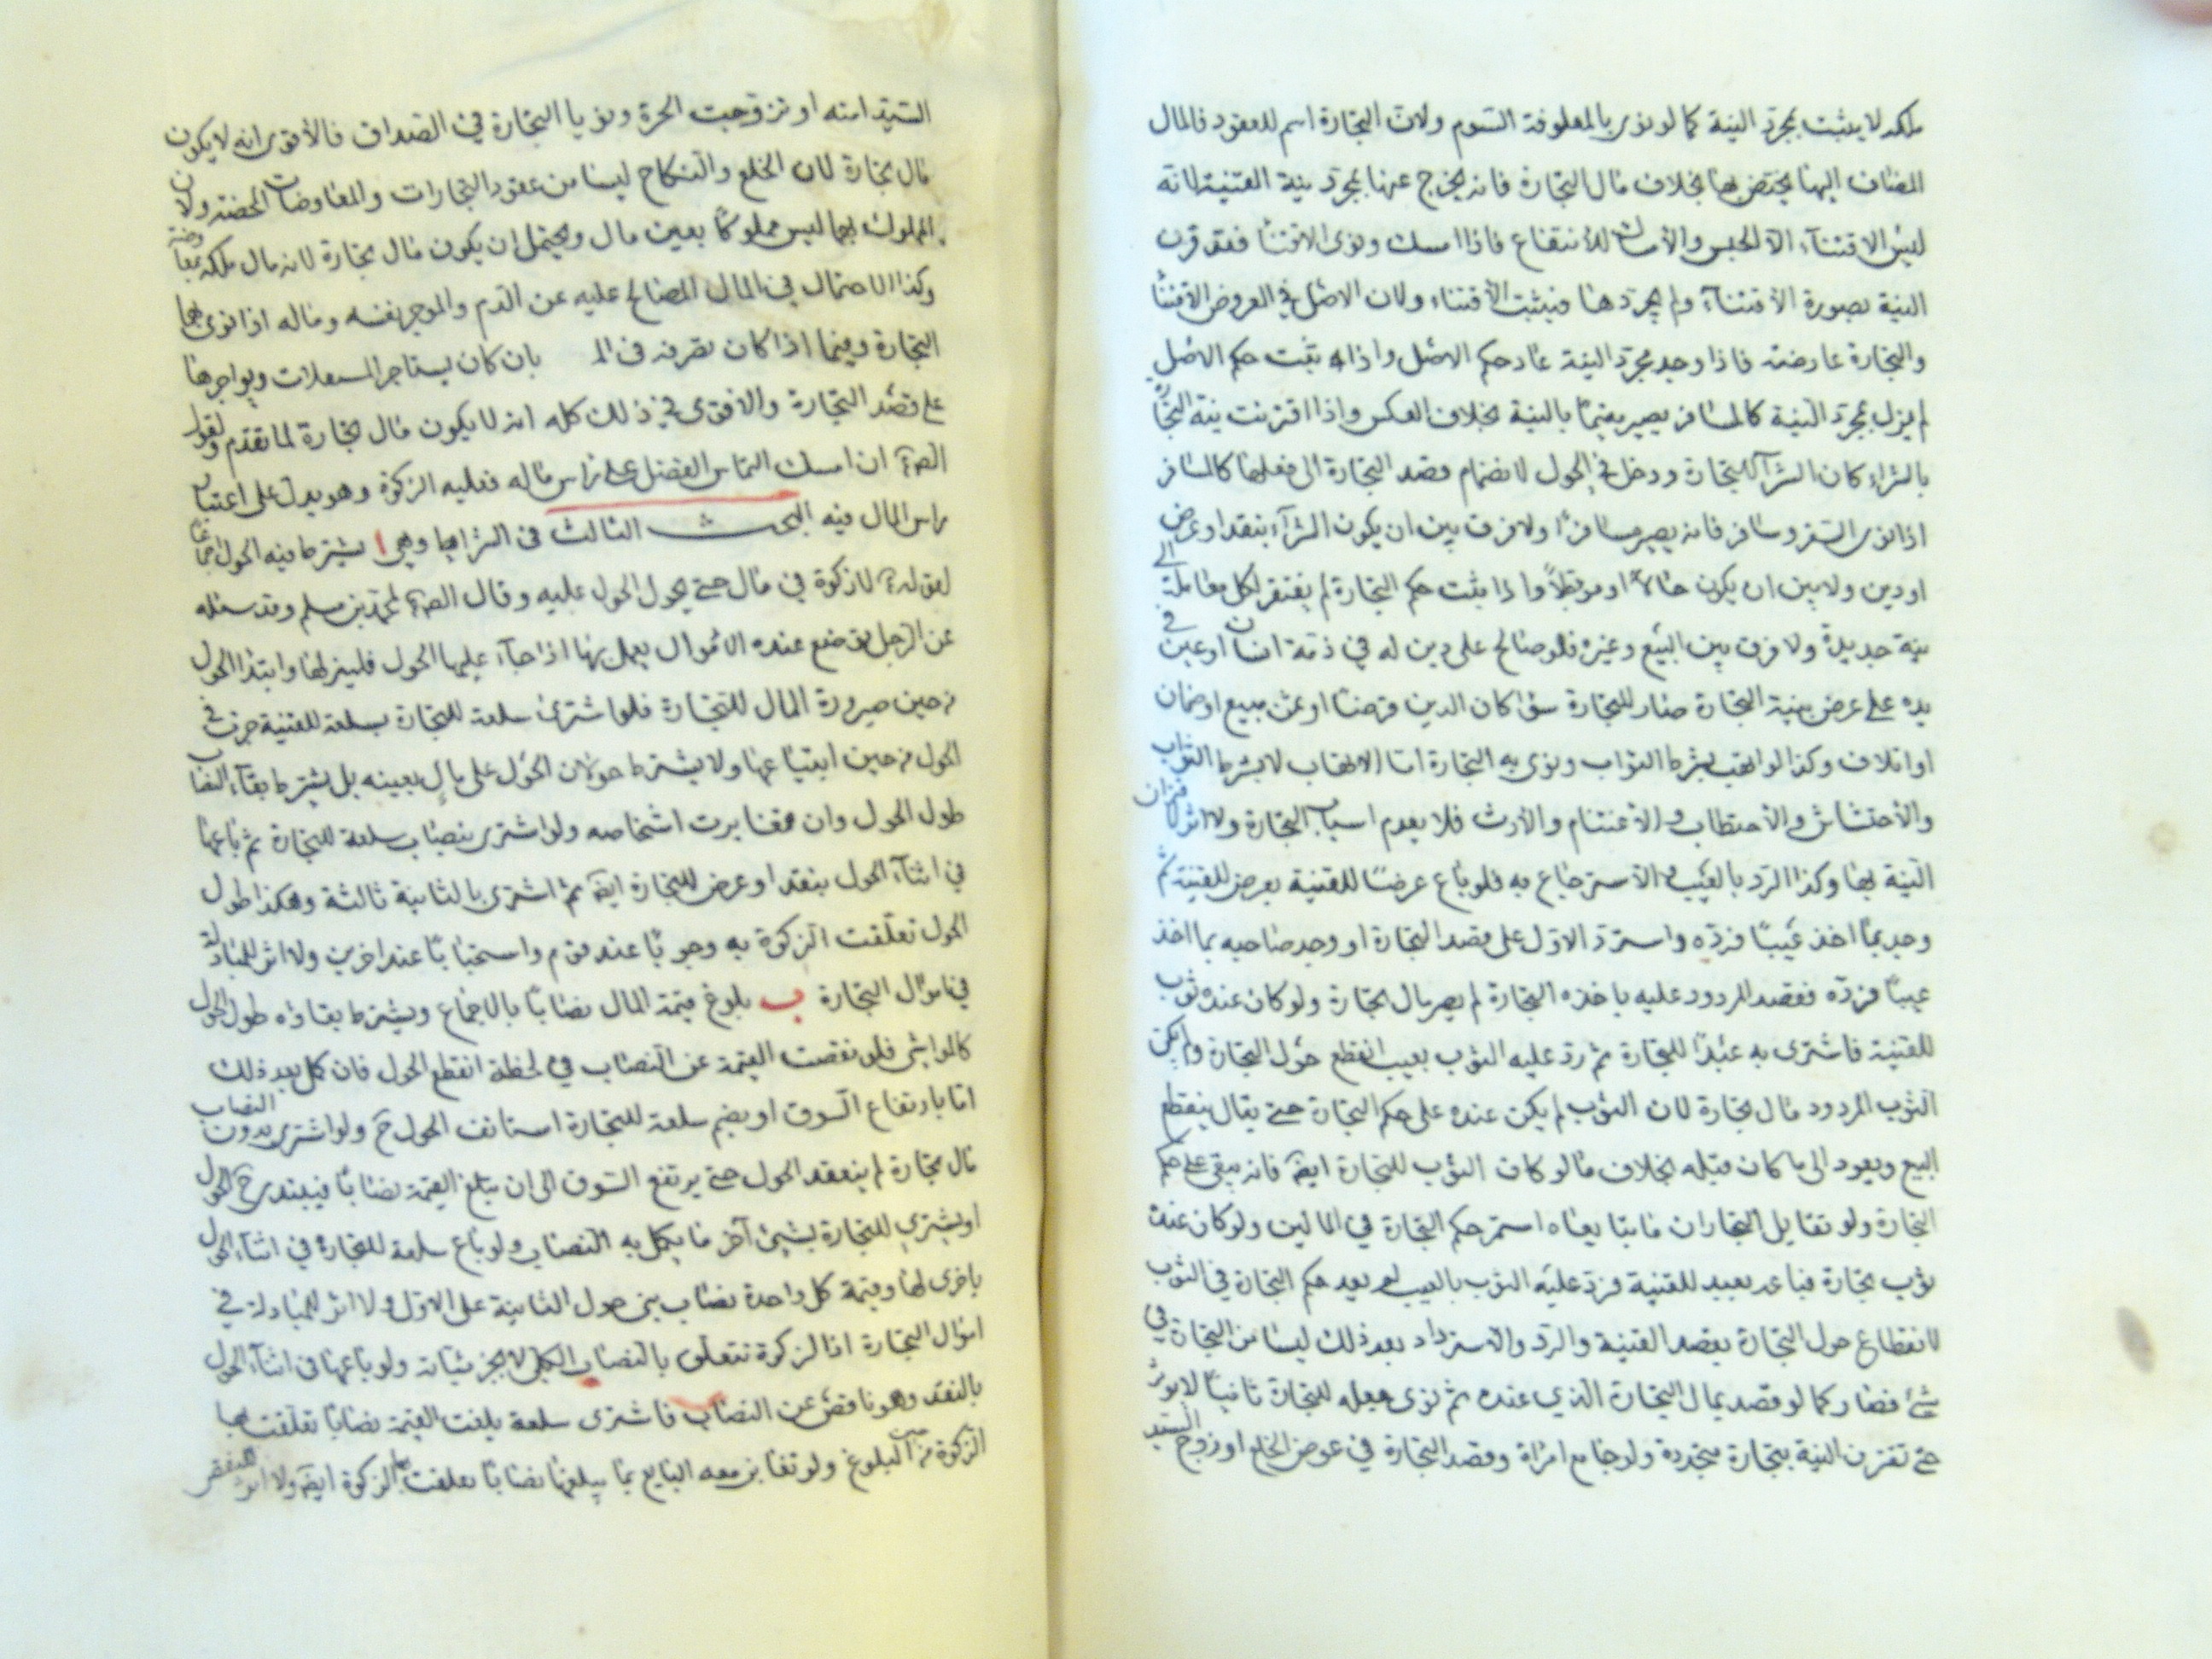 ملكه لا يثبت بمجرد النية كما لو نوى بالمعلوفة السوم ولان التجارة اسم للعقود فالمال
المضاف اليها يختص بها بخلاف مال التجارة فانه يخرج عنها بمجرد نية القنية لانه
ليس الاقتناء الا الحبس والأمساك للأنتفاع فاذا امسك ونوى الاقتنا فقد قرن
النية بصورة الأقتناء ولم يجردها فيثبت الأقتناء ولان الاصل في العروض الاقتنا
والتجارة عارضة فاذا وجد مجرد النية عاد حكم الاصل واذا ثبت حكم الاصل
لم يزل بمجرد النية كالمسافر يصير مقيما بالنية بخلاف العكس واذا اقترنت نية التجارة
بالشراء كان الشرآ للتجارة ودخل في الحول لانضمام قصد التجارة الى فعلها كالمسافر
اذا نوى السفر وسافر فانه يصير مسافرا ولا فرق بين ان يكون الشرآء بنقد او عرض
او دين ولا بين ان يكون حالا او مؤجلا واذا ثبت حكم التجارة لم يفتقر لكل معاملة الى
نية جديدة ولا فرق بين البيع وغيره فلو صالح على دين له في ذمة انسان او عين في
يده على عرض بنية التجارة صار للتجارة سوا كان الدين قرضا او ثمن مبيع او ضمان
او اتلاف وكذا لو اتهب بشرط الثواب ونوى به التجارة اما الاتهاب لا بشرط الثواب
والأحتشاش والأحتطاب والأغتنام والأرث فلا يعدم اسباب التجارة ولا اثر لاقتران
النية بها وكذا الرد بالعيب والأسترجاع به فلو باع عرضا للقنية بعرض للقنية ثم
وجد بما اخذ عيبا فرده واسترد الاول على قصد التجارة او وجد صاحبه بما اخذ
عيبا فرده فقصد المردود عليه باخذه التجارة لم يصر مال تجارة ولو كان عنده ثوب
للقنية فاشترى به عبدا للتجارة ثم رد عليه الثوب بعيب انقطع حول التجارة ولم يكن
الثوب المردود مال تجارة لان الثوب لم يكن عنده على حكم التجارة حتى يقال ينقطع
البيع ويعود الى ما كان قبله بخلاف ما لو كان الثوب للتجارة ايضا فانه يبقى على حكم
التجارة ولو تقايل التجاران ما تبايعاه استمر حكم التجارة في المالين ولو كان عنده
ثوب تجارة فباعه بعبد للقنية فرد عليه الثوب بالعيب لم يعد حكم التجارة في الثوب
لانقطاع حول التجارة بقصد القنية والرد والاسترداد بعد ذلك ليسا من التجارة في
شئ فصار كما لو قصد بمال التجارة الذي عنده ثم نوى جعله للتجارة ثانيا لا يؤثر
حتى تقترن النية بتجارة متجددة ولو جامع امراة وقصد التجارة في عوض الخلع او زوج السيد
السيد امته او تزوجت الحرة ونويا التجارة في الصداق فالأقوى انه لا يكون
مال تجارة لان الخلع والنكاح ليسا من عقود التجارات والمعاوضات المحضة ولان
المملوك بهما ليس مملوكا بعين مال ويحتمل ان يكون مال تجارة لانه مال ملكه بمعاوضة
وكذا الاحتمال في المال المصالح عليه عن الدم والموجر نفسه وماله اذا نوى بهما
التجارة وفيما اذا كان تصرفه في الم بان كان يستاجر المستغلات ويواجرها
على قصد التجارة والاقوى في ذلك كله انه لا يكون مال تجارة لما تقدم ولقول
الصادق ان امسك التماس الفضل على راس ماله فعليه الزكوة وهو يدل على اعتبار
راس المال فيه البحث الثالث في الشرايط وهي ا يشترط فيه الحول اجماعا
لقوله لا زكوة في مال حتى يحول الحول عليه وقال الصادق لمحمد بن مسلم وقد سئله
عن الرجل توضع عنده الأموال يعمل بها اذا حآء عليها الحول فليزكها وابتدا الحول
من حين صيرورة المال للتجارة فلو اشترى سلعة للتجارة بسلعة للقنية جرت في
الحول من حين ابتياعها ولا يشترط حولان الحول على مال بعينه بل يشترط بقآء النصاب
طول الحول وان تغايرت اشخاصه ولو اشترى بنصاب سلعة للتجارة ثم باعها
في اثنآء الحول بنقد او عرض للتجارة ايضا ثم اشترى بالثانية ثالثة وهكذا طول
الحول تعلقت الزكوة به وجوبا عند قوم واستحبابا عند اخرين ولا اثر للمبادلة
في اموال التجارة ب بلوغ قيمة المال نصابا بالاجماع ويشترط بقاؤه طول الحول
كالمواشي فلو نقصت القيمة عن النصاب في لحظة انقطع الحول فان كمل بعد ذلك
اما بارتفاع السوق او بضم سلعة للتجارة استانف الحول ح ولو اشترى بدون النصاب
مال تجارة لم ينعقد الحول حتى يرتفع السوق الى ان تبلغ القيمة نصابا فيبتدئ ح الحول
او يشتري للتجارة بشيئ آخر ما يكمل به النصاب ولو باع سلعة للتجارة في اثنآء الحول
باخرى لها وقيمة كل واحدة نصاب بنى حول الثانية على الاول ولا اثر للمبادلة في
اموال التجارة اذ الزكوة تتعلق بالنصاب الكلي لا بجزئياته ولو باعها في اثنآء الحول
بالنقد وهو ناقص عن النصاب فاشترى سلعة بلغت القيمة نصابا تعلقت بها
الزكوة من حين البلوغ ولو تقابض معه البايع بما يبلغها نصابا تعلقت بها الزكوة ايضا ولا اثر